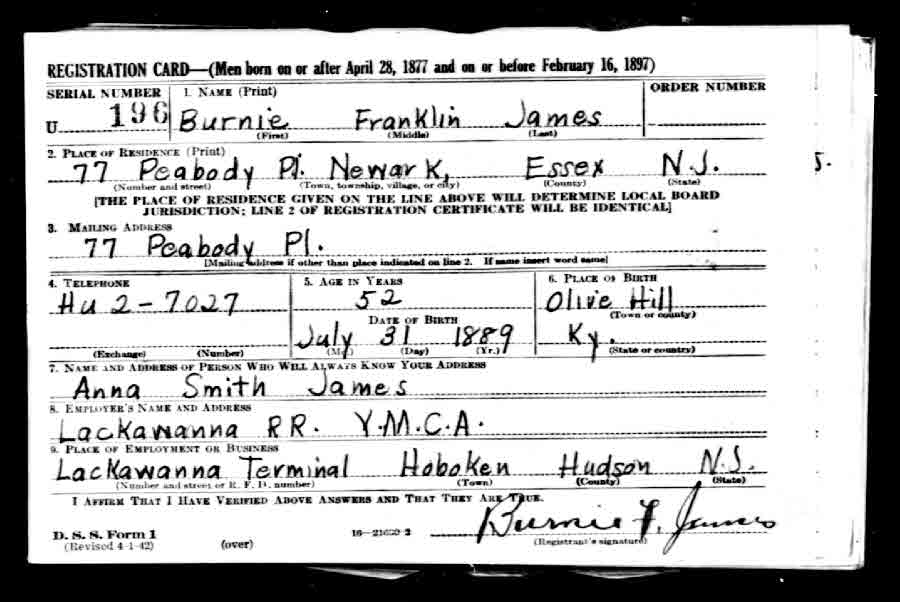 REGISTRATION CARD—(Men born on or after April 28, 1877 and on or before February 16, 1897)
SERIAL NUMBER 1. NAME (Print) ORDER NUMBER
U 196 Burnie Franklin James
(First) (Middle) (Last)
2. PLACE OF RESIDENCE (Print)
77 Peabody Pl. Newark, Essex N.J.
(Number and street) (Town, township, village, or city) (County) (State)
[THE PLACE OF RESIDENCE GIVEN ON THE LINE ABOVE WILL DETERMINE LOCAL BOARD
JURISDICTION; LINE 2 OF REGISTRATION CERTIFICATE WILL BE IDENTICAL]
3. MAILING ADDRESS
77 Peabody Pl.
[Mailing address if other than place indicated on line 2. If same insert word same]
4. TELEPHONE 5. AGE IN YEARS 6. PLACE OF BIRTH
Hu 2-7027 52 Olive Hill
(Town or county)
DATE OF BIRTH
July 31 1889 Ky.
(Exchange) (Number) (Mo.) (Day) (Yr.) (State or country)
7. NAME AND ADDRESS OF PERSON WHO WILL ALWAYS KNOW YOUR ADDRESS
Anna Smith James
8. EMPLOYER'S NAME AND ADDRESS
Lackawanna RR. Y.M.C.A.
9. PLACE OF EMPLOYMENT OR BUSINESS
Lackawanna Terminal Hoboken Hudson N.J.
(Number and street or R. F. D. number) (Town) (County) (State)
I AFFIRM THAT I HAVE VERIFIED ABOVE ANSWERS AND THAT THEY ARE TRUE.
Burnie F. James
D. S. S. Form 1
(Revised 4-1-42) (over) (Registrant's signature)